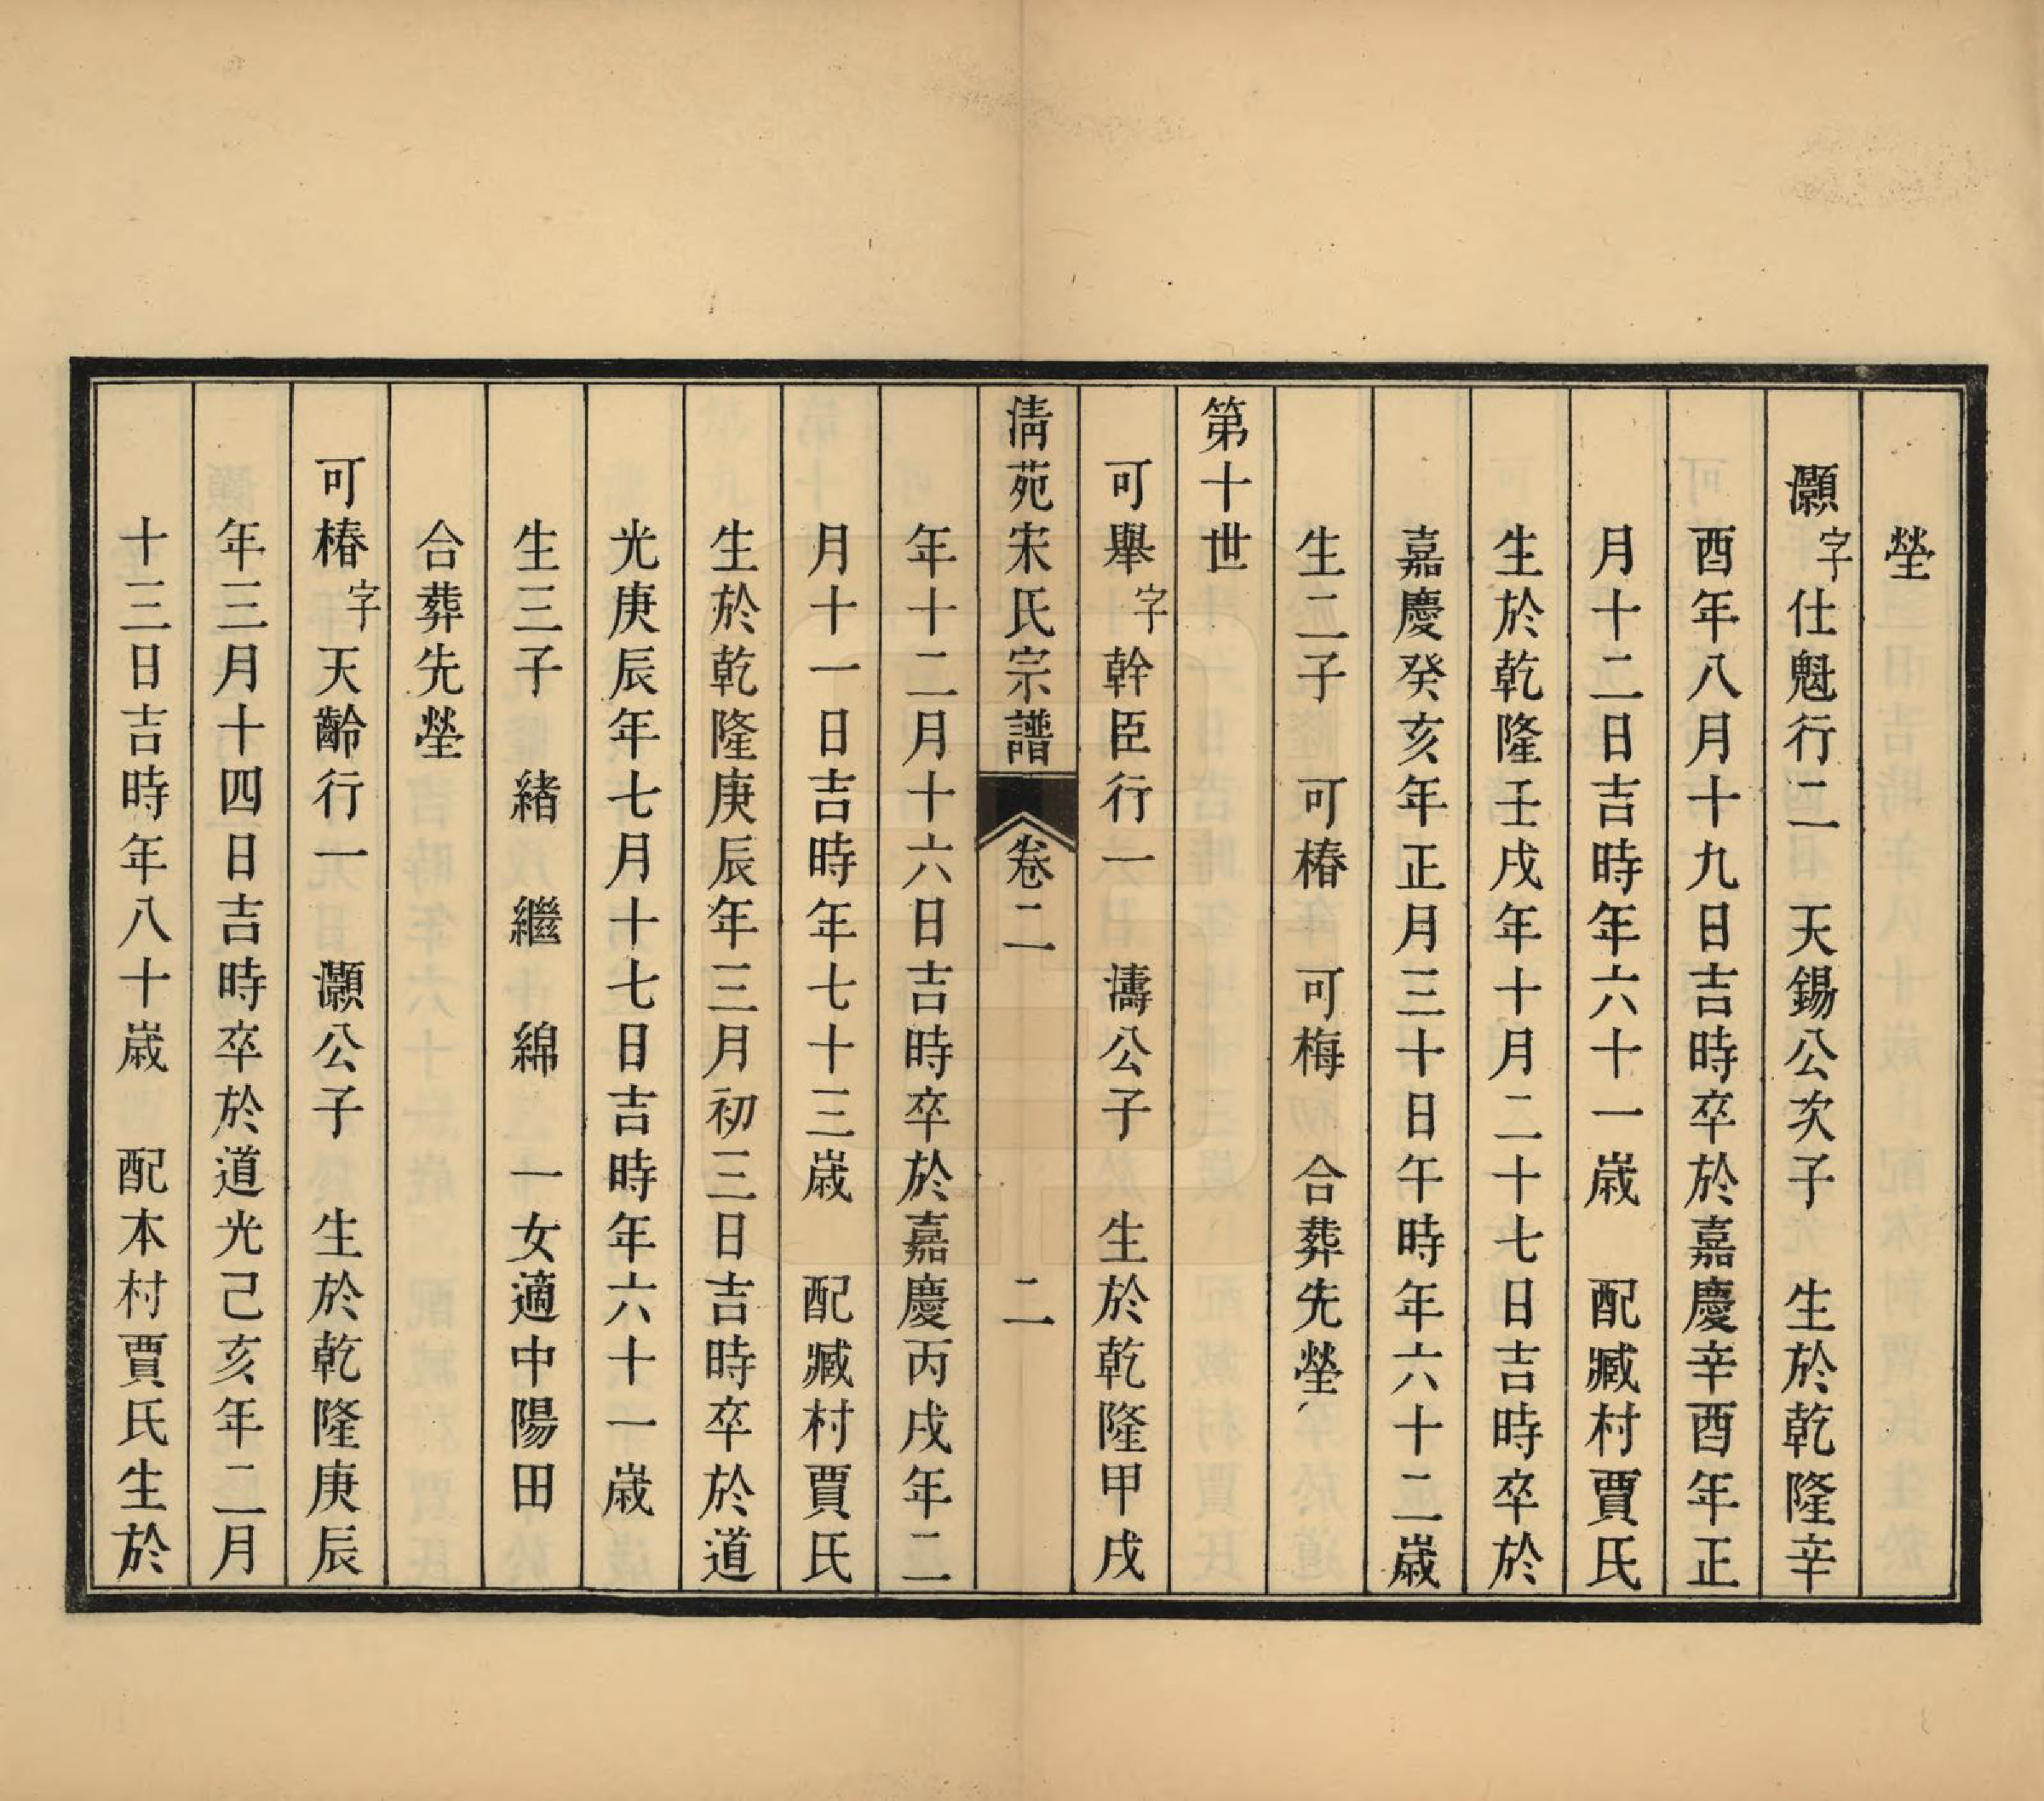 塋
灝字仕魁行二　天錫公次子　生於乾隆辛
酉年八月十九日吉時卒於嘉慶辛酉年正
月十二日吉時年六十一歲　配臧村賈氏
生於乾隆壬戌年十月二十七日吉時卒於
嘉慶癸亥年正月三十日午時年六十二歲
生二子　可椿　可梅　合葬先塋
第十世
可舉字幹臣行一　濤公子　生於乾隆甲戌
清苑宋氏宗譜　卷二　二
年十二月十六日吉時卒於嘉慶丙戌年二
月十一日吉時年七十三歲　配臧村賈氏
生於乾隆庚辰年三月初三日吉時卒於道
光庚辰年七月十七日吉時年六十一歲
生三子　緒　繼　綿　一女適中陽田
合葬先塋
可椿字天齡行一　灝公子　生於乾隆庚辰
年三月十四日吉時卒於道光己亥年二月
十三日吉時年八十歲　配本村賈氏生於